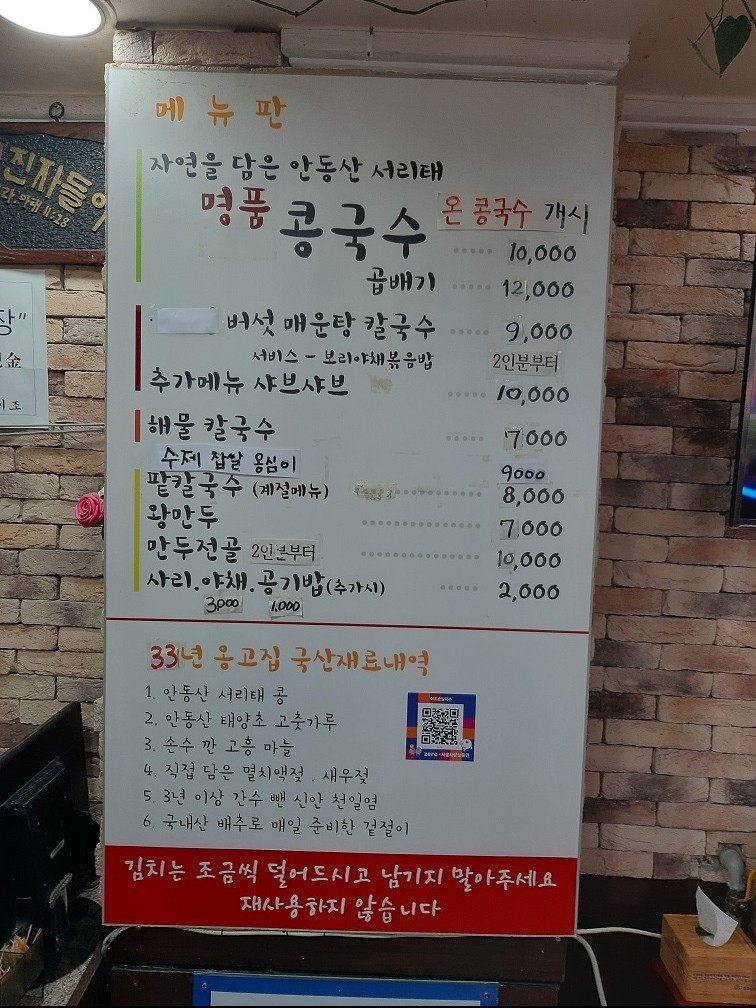 메뉴판
자연을 담은 안동산 서리태
명품 콩국수 온 콩국수 개시
10,000
곱배기 12,000
버섯 매운탕 칼국수 9,000
서비스 - 보리야채볶음밥 2인분부터
추가메뉴 샤브샤브 10,000
해물 칼국수 7,000
수제 찹쌀 옹심이 9000
팥칼국수 (계절메뉴) 8,000
왕만두 7,000
만두전골 2인분부터 10,000
사리.야채.공기밥(추가시) 2,000
3000 1.000
33년 옹고집 국산재료내역
1. 안동산 서리태 콩
2. 안동산 태양초 고춧가루
3. 손수 깐 고흥 마늘
4. 직접 담은 멸치액젓 . 새우젓
5. 3년 이상 간수 뺀 신안 천일염
6. 국내산 배추로 매일 준비한 겉절이
김치는 조금씩 덜어드시고 남기지 말아주세요
재사용하지 않습니다